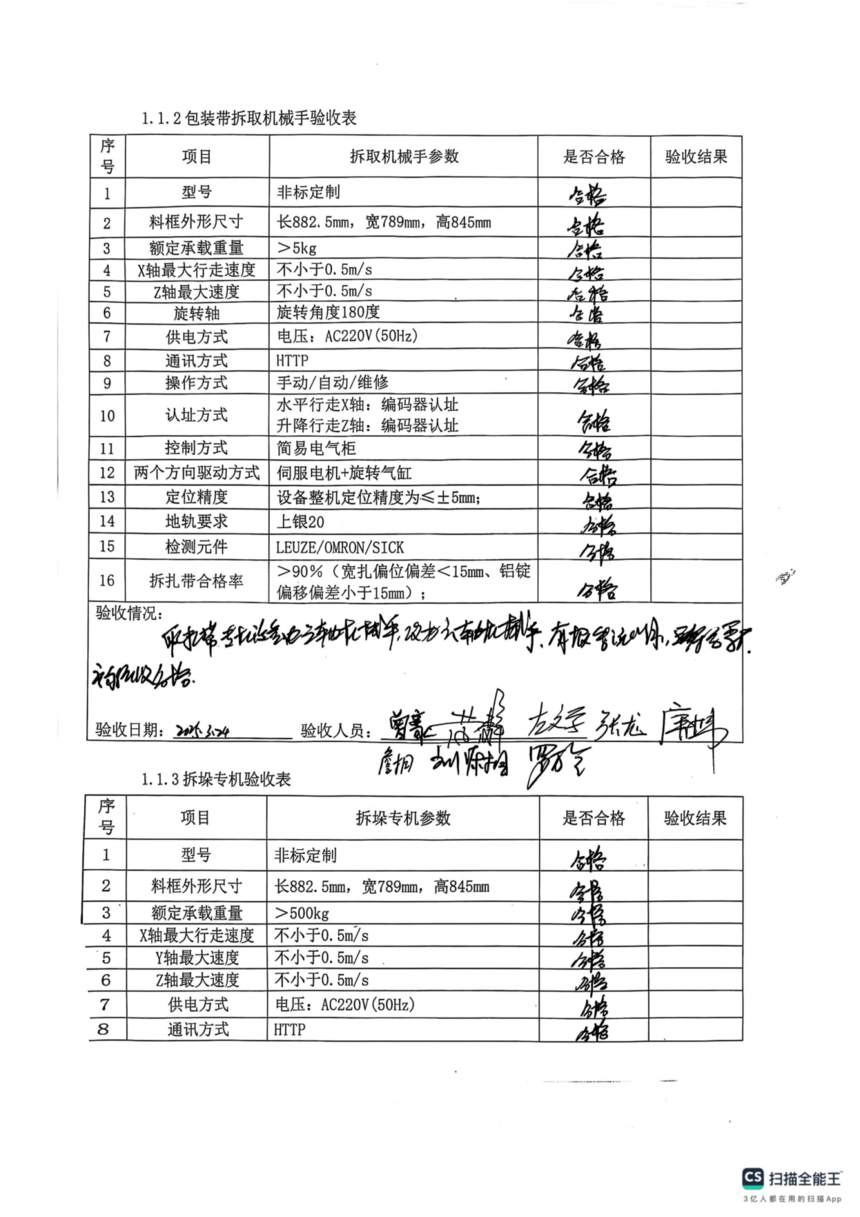 1.1.2包装带拆取机械手验收表
序号 项目 拆取机械手参数 是否合格 验收结果
1 型号 非标定制 合格
2 料框外形尺寸 长882.5mm，宽789mm，高845mm 合格
3 额定承载重量 ＞5kg 合格
4 X轴最大行走速度 不小于0.5m/s 合格
5 Z轴最大速度 不小于0.5m/s 合格
6 旋转轴 旋转角度180度 合格
7 供电方式 电压：AC220V(50Hz) 合格
8 通讯方式 HTTP 合格
9 操作方式 手动/自动/维修 合格
10 认址方式 水平行走X轴：编码器认址
升降行走Z轴：编码器认址 合格
11 控制方式 简易电气柜 合格
12 两个方向驱动方式 伺服电机+旋转气缸 合格
13 定位精度 设备整机定位精度为≤±5mm； 合格
14 地轨要求 上银20 合格
15 检测元件 LEUZE/OMRON/SICK 合格
16 拆扎带合格率 ＞90%（宽扎偏位偏差＜15mm、铝锭
偏移偏差小于15mm）； 合格
验收情况：
验收合格.
验收日期： 验收人员： 张龙
1.1.3拆垛专机验收表
序号 项目 拆垛专机参数 是否合格 验收结果
1 型号 非标定制 合格
2 料框外形尺寸 长882.5mm，宽789mm，高845mm 合格
3 额定承载重量 ＞500kg 合格
4 X轴最大行走速度 不小于0.5m/s 合格
5 Y轴最大速度 不小于0.5m/s 合格
6 Z轴最大速度 不小于0.5m/s 合格
7 供电方式 电压：AC220V(50Hz) 合格
8 通讯方式 HTTP 合格
CS 扫描全能王
3亿人都在用的扫描App